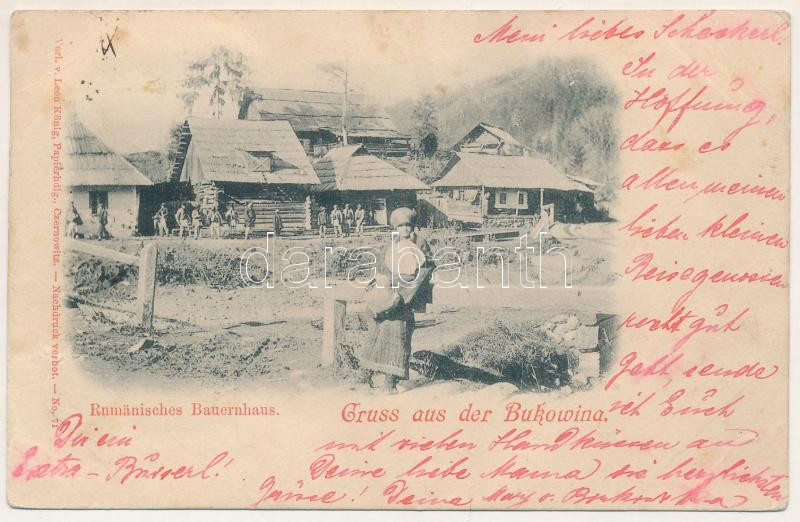 Mein liebes Scheckerl!
In der
Hoffnung,
dass es
allen meinen
lieben kleinen
Reisegenossen
recht gut
geht, sende
ich Euch
mit vielen Handküssen an
Deine liebe Mama die herzlichsten
Grüsse! Deine Mary v.
Dir ein
Extra-Busserl!
Rumänisches Bauernhaus.
Gruss aus der Bukowina.
Verl. v. Leon König, Papierhdlg., Czernowitz. — Nachdruck verbot. — No. 71
darabanth